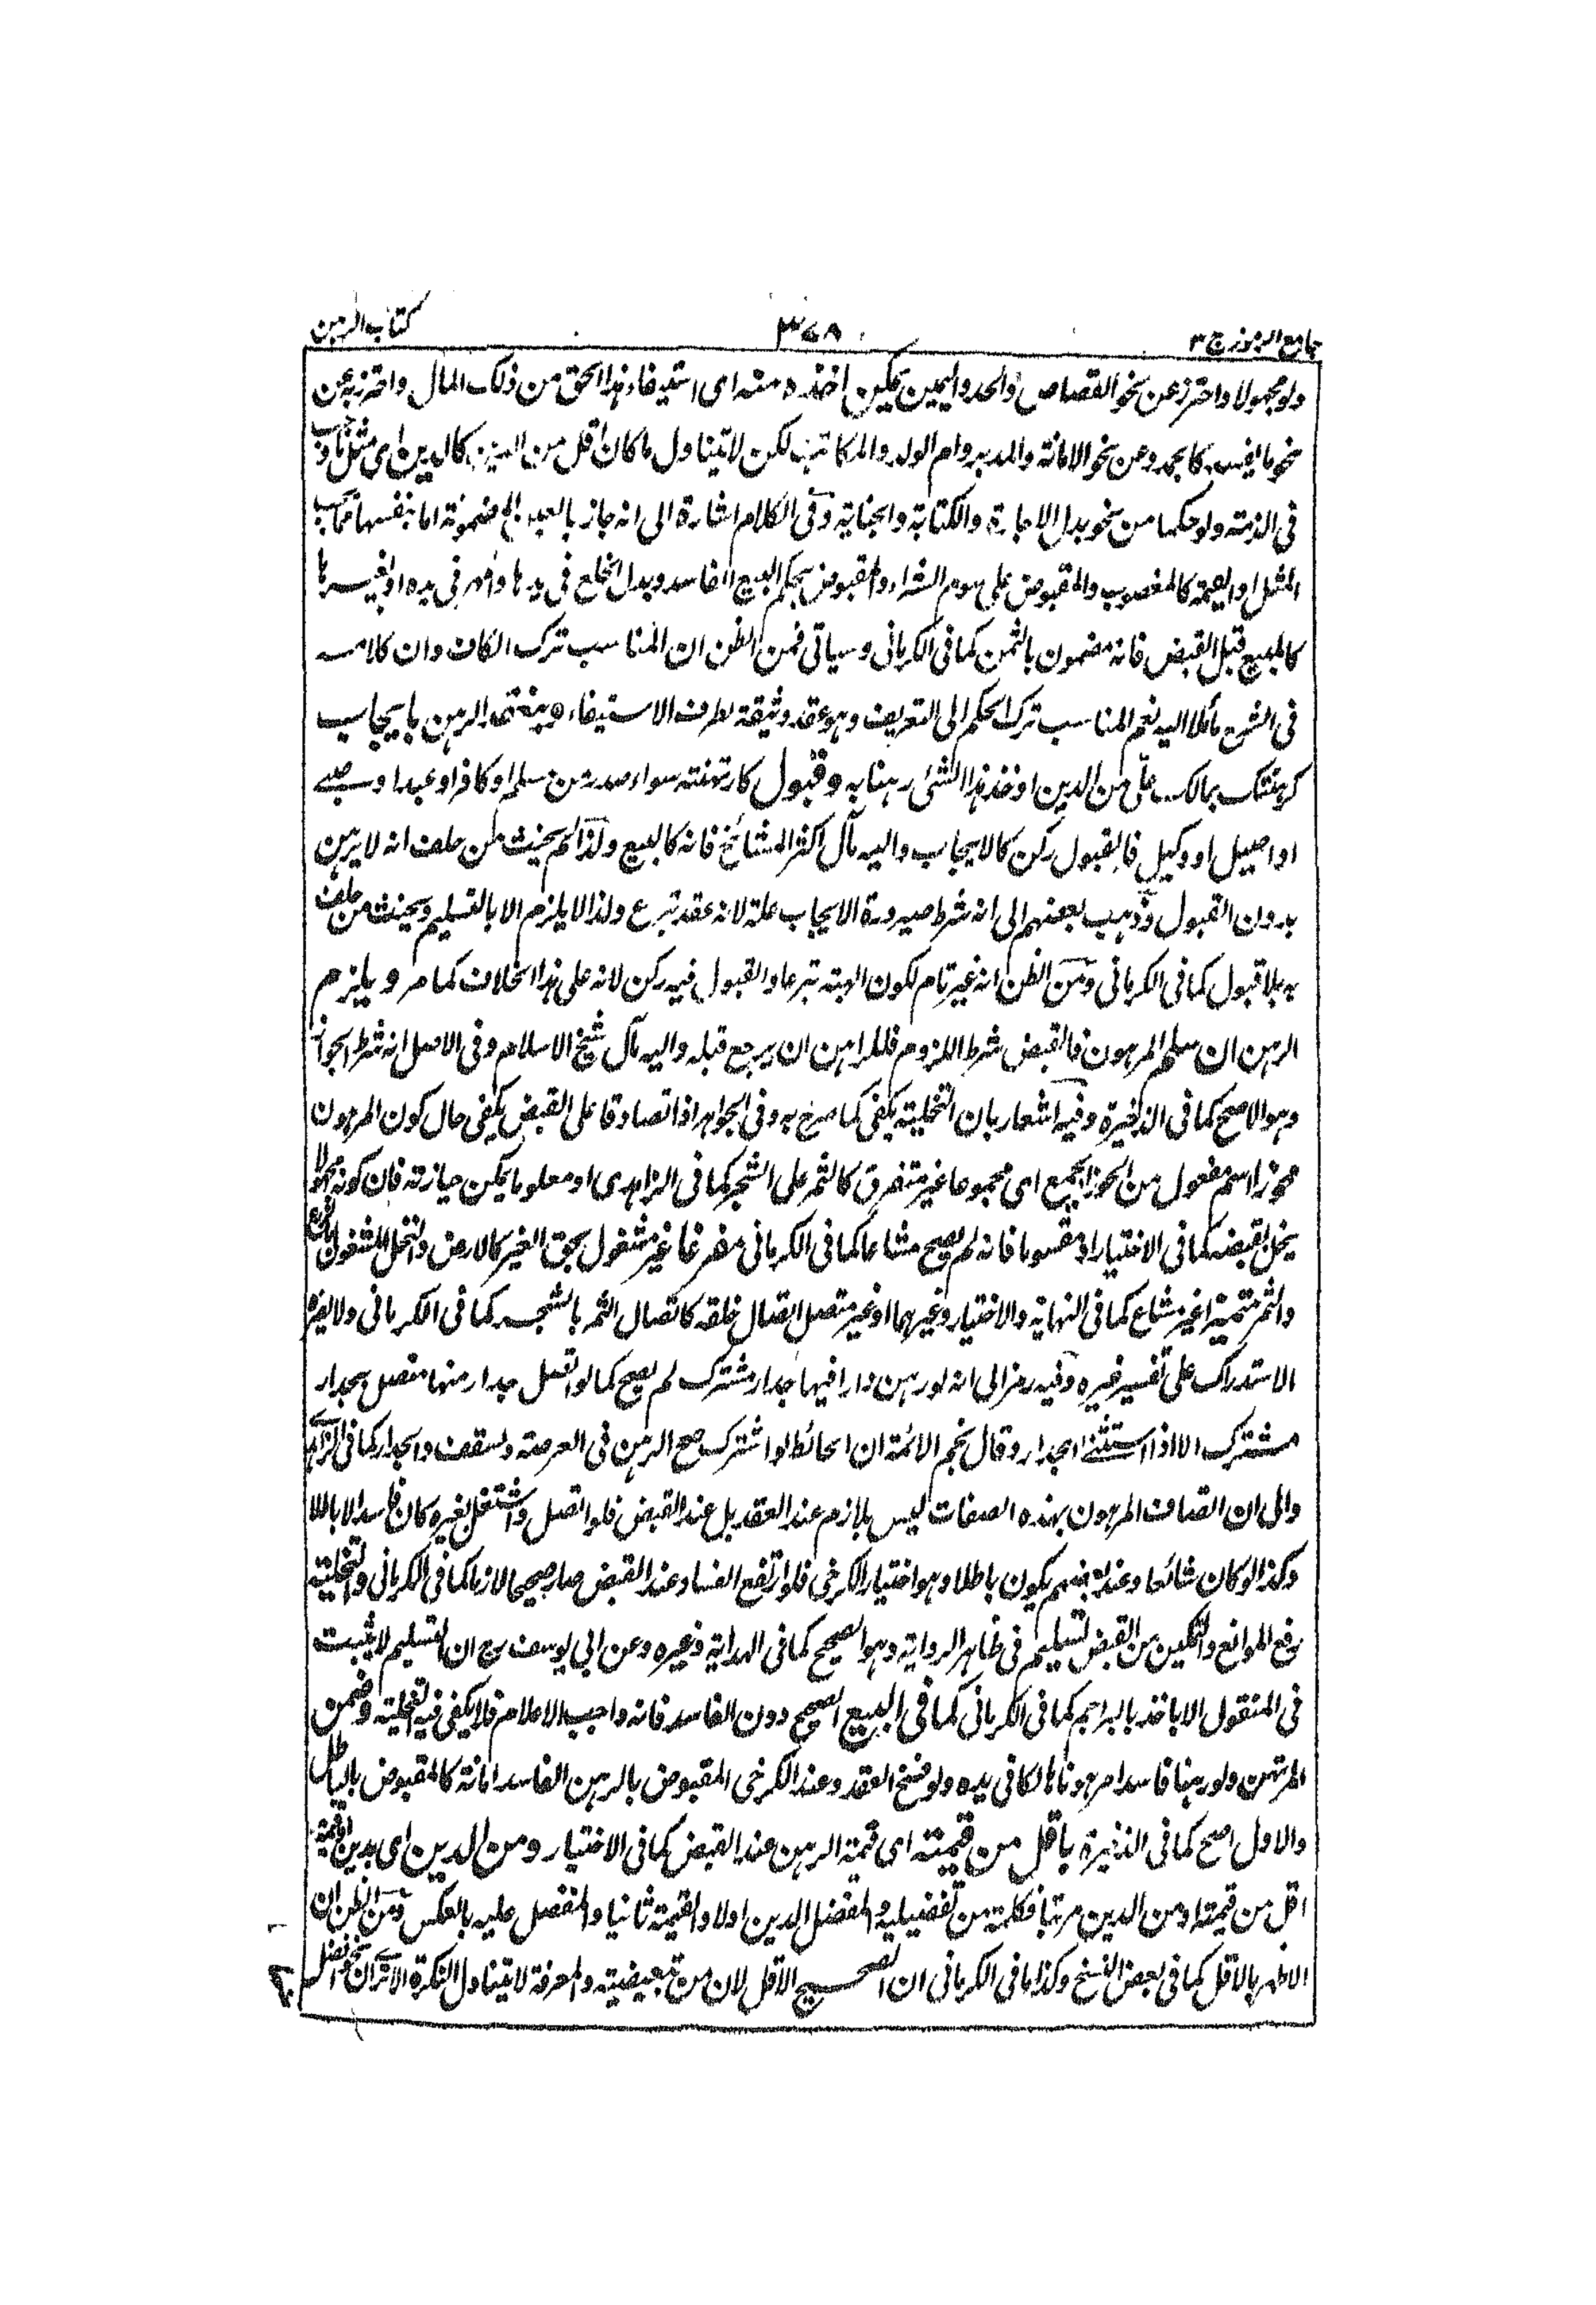 جامع الرموز ج ٣
٣٧٨
كتاب الرهن
ولو مجهولا واحترز عن نحو القصاص والحد واليمين يمكن اخذه منه اى استيفاء هذا الحق من ذلك المال واحترز به عن
نحو ما يفسد كالجمد وعن نحو الامانة والمدبر وام الولد والمكاتب لكن لا يتناول ما كان اقل من الدين كالدين اى مثل ما وجب
فى الذمة ولو حكما من نحو بدل الاجارة والكتابة والجناية وفى الكلام اشارة الى انه جاز بالعين المضمونة اما بنفسها مما يجب
المثل او القيمة كالمغصوب والمقبوض على سوم الشراء والمقبوض بحكم البيع الفاسد وبدل الخلع فى يدها والمهر فى يده او بغيرها
كالمبيع قبل القبض فانه مضمون بالثمن كما فى الكرمانى وسياتى فمن الظن ان المناسب ترك الكاف وان كلامه
فى الشرح مائلا اليه نعم المناسب ترك الحكم الى التعريف وهو عقد وثيقة بطرف الاستيفاء وينعقد الرهن بايجاب
كرهنتك بمالك علّى من الدين او خذ هذا الشئ رهنا به وقبول كارتهنته سواء صدر من مسلم او كافر او عبد او صبى
او اصيل او وكيل فالقبول ركن كالايجاب واليه مال اكثر المشائخ فانه كالبيع ولذا لم يحنث من حلف انه لا يرهن
بدون القبول وذهب بعضهم الى انه شرط صيرورة الايجاب علة لانه عقد تبرع ولذا لا يلزم الا بالتسليم ويحنث من حلف
به بلا قبول كما فى الكرمانى ومن الظن انه غير تام لكون الهبة تبرعا والقبول فيه ركن لانه على هذا الخلاف كما مر ويلزم
الرهن ان سلم المرهون فالقبض شرط اللزوم فللراهن ان يرجع قبله واليه مال شيخ الاسلام وفى الاصل انه شرط الجواز
وهو الاصح كما فى الذخيرة وفيه اشعار بان التخلية يكفى كما صرح به وفى الجواهر اذا تصادقا على القبض يكفى حال كون المرهون
محوزا اسم مفعول من الحوز الجمع اى مجموعا غير متفرق كالثمر على الشجر كما فى الزاهدى او معلوما يمكن حيازته فان كونه مجهولا
يخل بقبضه كما فى الاختيار او مقسوما فانه لم يصح مشاعا كما فى الكرمانى مفرغا غير مشغول بحق الغير كالارض والنخل المشغولين بالزرع
والثمر متميزا غير مشاع كما فى النهاية والاختيار وغيرهما او غير متصل اتصال خلقة كاتصال الثمر بالشجر كما فى الكرمانى ولا يضره
الاستدراك على تفسير غيره وفيه رمز الى انه لو رهن دارا فيها جدار مشترك لم يصح كما لو اتصل جدار منها متصل بجدار
مشترك الا اذا استثنى الجدار وقال نجم الائمة ان الحائط لو اشترك صح الرهن فى العرصة والسقف والجدار كما فى الزاهدى
والى ان اتصاف المرهون بهذه الصفات ليس بلازم عند العقد بل عند القبض فلو اتصل واشتغل بغيره كان فاسدا لا باطلا
وكذا لو كان شائعا وعند بعضهم يكون باطلا وهو اختيار الكرخى فلو ارتفع الفساد عند القبض صار صحيحا لازما كما فى الكرمانى والتخلية
رفع الموانع والتمكين من القبض تسليم فى ظاهر الرواية وهو الصحيح كما فى الهداية وغيره وعن ابى يوسف رح ان التسليم لا يثبت
فى المنقول الا باخذ بالبراجم كما فى الكرمانى كما فى البيع الصحيح دون الفاسد فانه واجب الاعلام فلا يكفى فيه التخلية وضمن
المرتهن ولو رهنا فاسدا مرهونا هالكا فى يده ولو فسخ العقد وعند الكرخى المقبوض بالرهن الفاسد امانة كالمقبوض بالباطل
والاول اصح كما فى الذخيرة باقل من قيمته اى قيمة الرهن عند القبض كما فى الاختيار ومن الدين اى بدين او قيمة
اقل من قيمته او من الدين مرتبا فكلمة من تفضيلية والمفضل الدين اولا والقيمة ثانيا والمفضل عليه بالعكس ومن الظن ان
الاظهر بالاقل كما فى بعض النسخ وكذا ما فى الكرمانى ان الصحيح الاقل لان من تبعيضية والمعرفة لا يتناول النكرة الا ترى ان نحو افضل